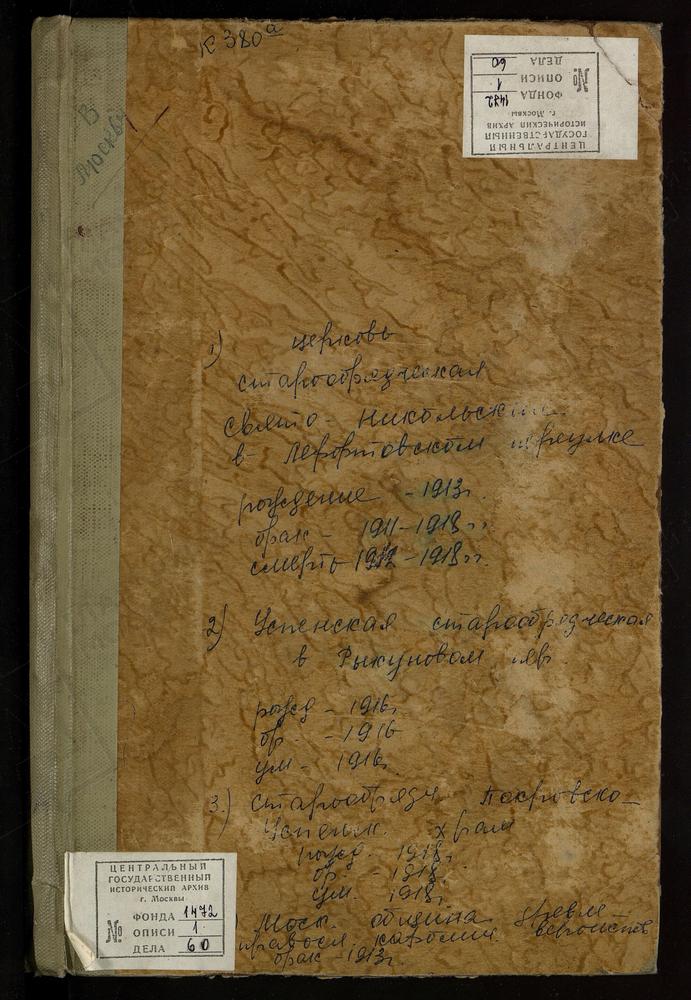 К 380а
ЦЕНТРАЛЬНЫЙ
ГОСУДАРСТВЕННЫЙ
ИСТОРИЧЕСКИЙ АРХИВ
г. Москвы
№
ФОНДА 1472
ОПИСИ 1
ДЕЛА 60
В
Москвы
1) церковь
старообрядческая
Свято-Никольская
в Лефортовском переулке
рождение - 1913г.
брак - 1911-1918гг.
смерть 1912-1918гг.
2) Успенская старообрядческая
в Рыкуновом пер.
рожд - 1916г
бр. - 1916
ум - 1916г.
3.) старообрядч Покровско-
Успенск. храм
рожд. 1918г
бр. - 1918г.
ум. 1918г.
Моск. община древле-
православ. кафолич. вероисп
брак - 1913г.
ЦЕНТРАЛЬНЫЙ
ГОСУДАРСТВЕННЫЙ
ИСТОРИЧЕСКИЙ АРХИВ
г. Москвы
№
ФОНДА 1472
ОПИСИ 1
ДЕЛА 60